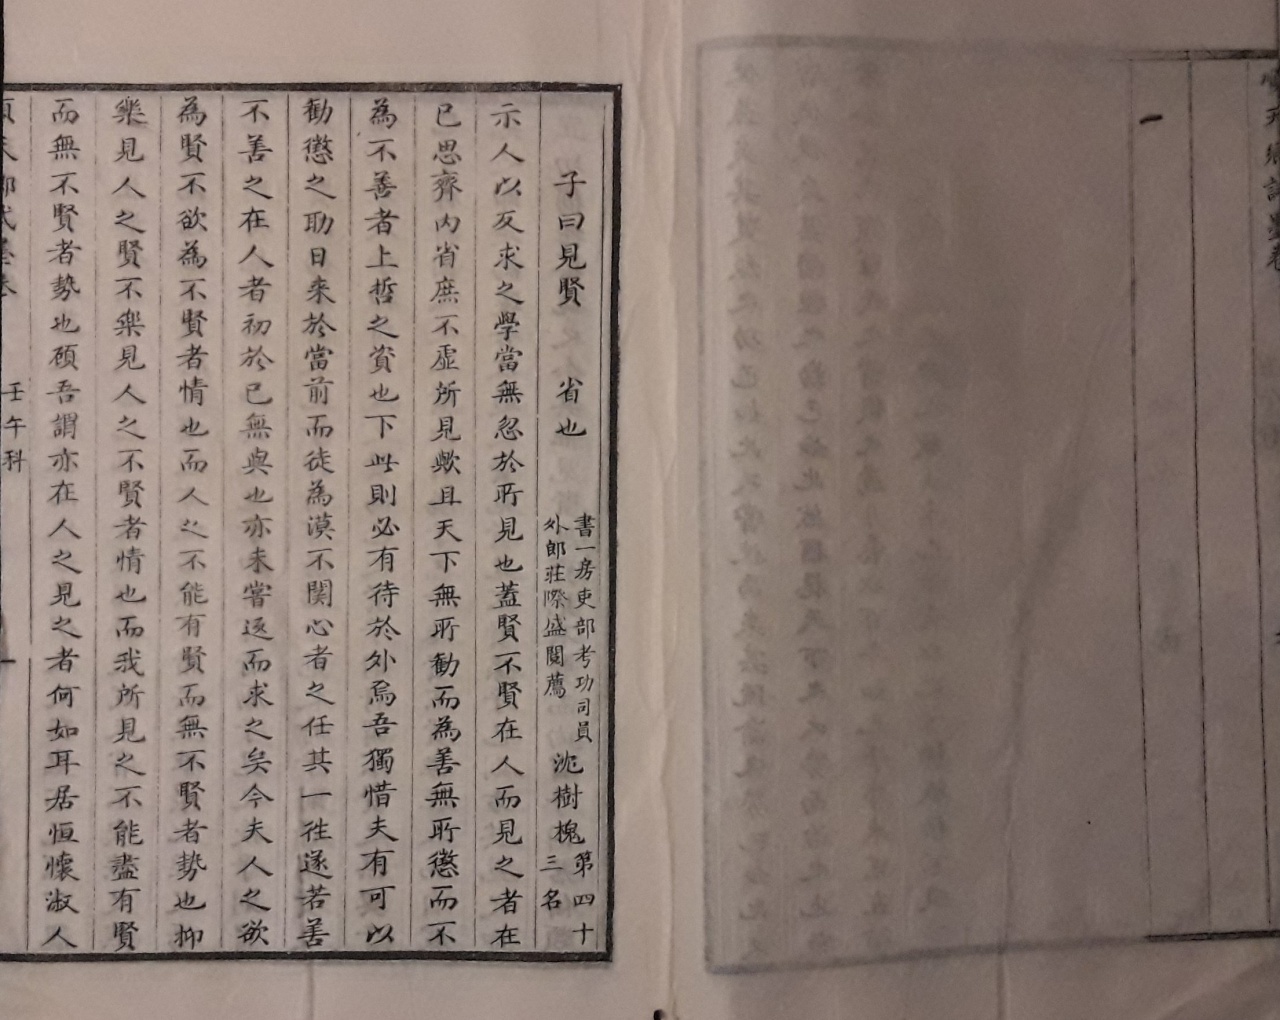 子曰見賢 省也
書一房吏部考功司員
外郎莊際盛閱薦
沈樹槐
第四十
三名
示人以反求之學當無忽於所見也蓋賢不賢在人而見之者在
已思齊內省庶不虛所見歟且天下無所勸而為善無所懲而不
為不善者上哲之資也下此則必有待於外焉吾獨惜夫有可以
勸懲之助日來於當前而徒為漠不関心者之任其一往遂若善
不善之在人者初於已無與也亦未嘗返而求之矣今夫人之欲
為賢不欲為不賢者情也而人之不能有賢而無不賢者勢也抑
樂見人之賢不樂見人之不賢者情也而我所見之不能盡有賢
而無不賢者勢也顧吾謂亦在人之見之者何如耳居恒懷淑人
壬午科
一